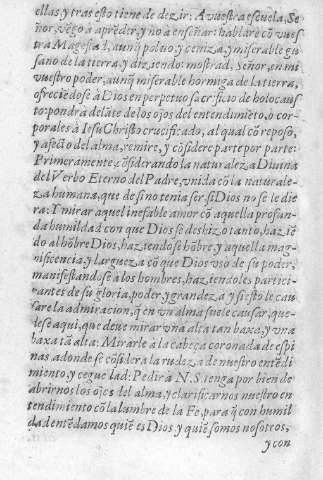 ellas, y tras esto tiene de dezir: A vuestra escuela, Se
ñor, vẽgo a aprẽder, y no a enseñar: hablarè cõ vues
tra Magestad, aunq̃ polvo, y ceniza, y miserable gu
sano de la tierra, y diziendo: mostrad, Señor, en mi
vuestro poder, aunq̃ miserable hormiga de la tierra,
ofreciẽdose à Dios en perpetuo sacrificio de holocaus
to: pondrà delãte de los ojos del entendimiẽto, o cor-
porales à Iesu Christo crucificado, al qual cõ reposo,
y afecto del alma, remire, y cõsidere parte por parte:
Primeramente, cõsiderando la naturaleza Divina
del Verbo Eterno del Padre, vnida cõ la naturale-
za humana, que de si no tenia ser, si Dios no se le die
ra: I mirar aquel inefable amor cõ aquella profun-
da humildad con que Dios se deshizo tanto, haziẽ
do al hõbre Dios, haziendose hõbre, y aquella mag-
nificencia, y largueza cõ que Dios vsò de su poder,
manifestãdose à los hombres, haziendoles partici-
pantes de su gloria, poder, y grandeza y si esto le cau
sare la admiracion, q̃ en vn alma suele causar, que-
dese aqui, que deve mirar vna alta tan baxa, y vna
baxa tã alta: Mirarle à la cabeça coronada de espi
nas a donde se cõsidera la rudeza de nuestro entẽdi
miento, y ceguedad: Pedir à N.S. tenga por bien de
abrirnos los ojos del alma, y clarificarnos nuestro en
tendimiento cõ la lumbre de la Fe, para q̃ con humil
dad entẽdamos quiẽ es Dios y quiẽ somos nosotros,
y con